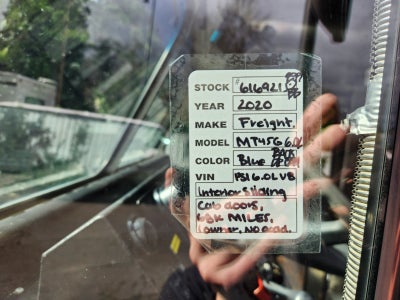 STOCK # 616921
YEAR 2020
MAKE Freight.
MODEL MT45G 6.0L
COLOR Blue
VIN B16.0LV8
Interior Sliding
Cab doors,
68K MILES,
1owner, No acad.